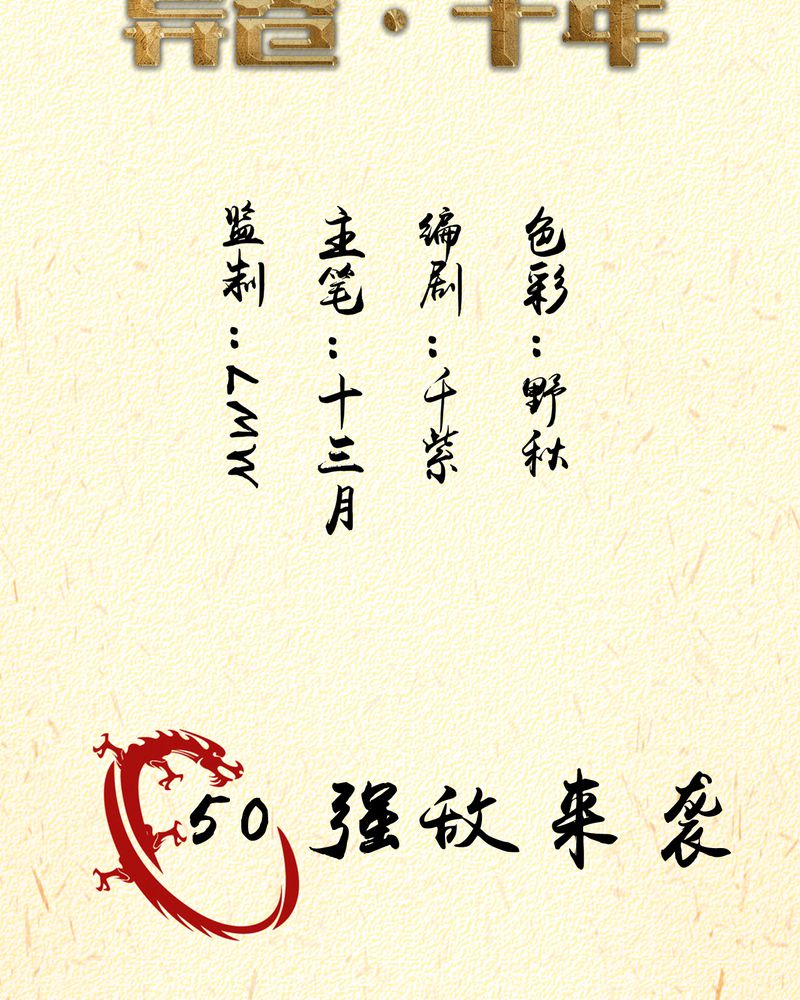 · 千年
监制：
主笔：十三月
编剧：千紫
色彩：野秋
50 强敌来袭